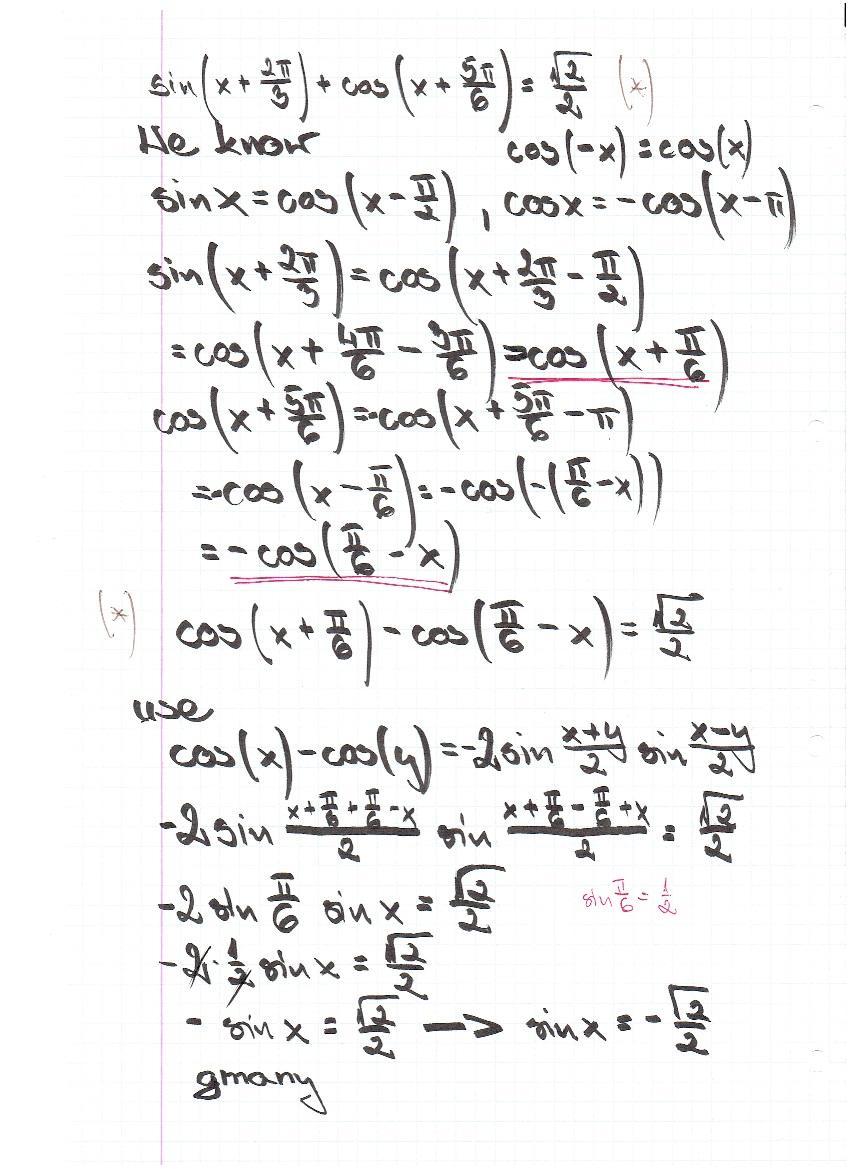 sin(x + 2π/3) + cos(x + 5π/6) = √2/2 (*)
We know cos(-x) = cos(x)
sin x = cos(x - π/2), cos x = -cos(x - π)
sin(x + 2π/3) = cos(x + 2π/3 - π/2)
= cos(x + 4π/6 - 3π/6) = cos(x + π/6)
cos(x + 5π/6) = -cos(x + 5π/6 - π)
= -cos(x - π/6) = -cos(-(π/6 - x))
= -cos(π/6 - x)
(*) cos(x + π/6) - cos(π/6 - x) = √2/2
use
cos(x) - cos(y) = -2 sin (x+y)/2 sin (x-y)/2
-2 sin (x + π/6 + π/6 - x)/2 sin (x + π/6 - π/6 + x)/2 = √2/2
-2 sin π/6 sin x = √2/2 sin π/6 = 1/2
-2 · 1/2 sin x = √2/2
- sin x = √2/2 → sin x = -√2/2
gmany